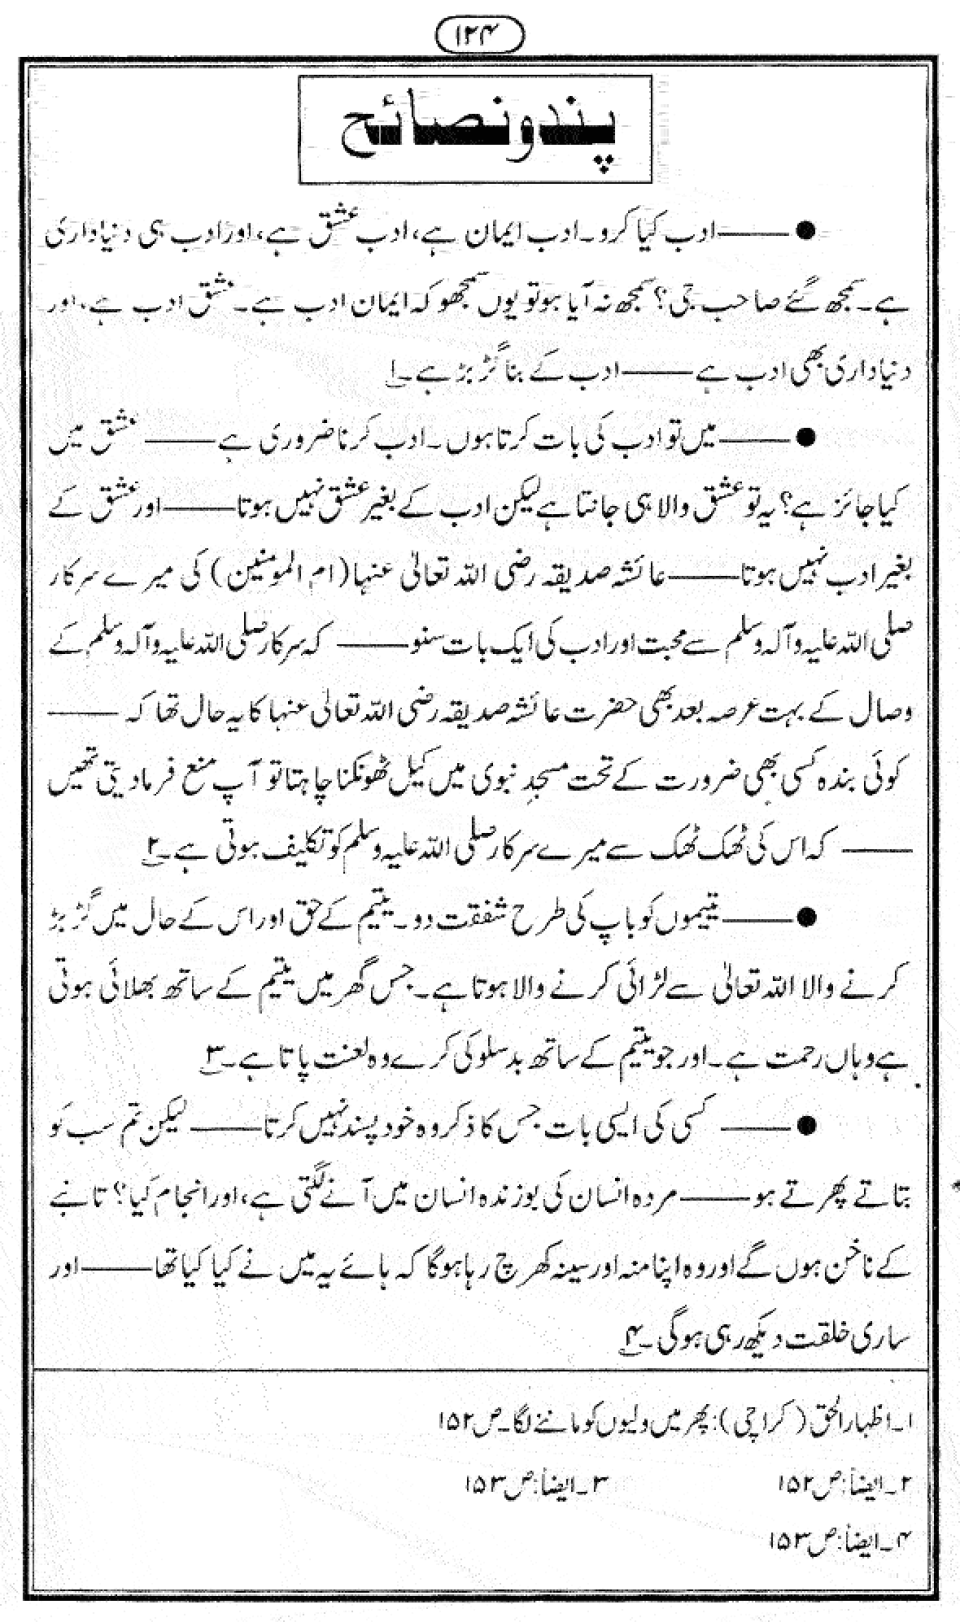 ۱۲۴
پند و نصائح
● ——— ادب کیا کرو۔ ادب ایمان ہے، ادب عشق ہے، اور ادب ہی دنیاداری
ہے۔ سمجھ گئے صاحب جی؟ سمجھ نہ آیا ہو تو یوں سمجھو کہ ایمان ادب ہے۔ عشق ادب ہے، اور
دنیاداری بھی ادب ہے ——— ادب کے بنا گڑبڑ ہے۔۱
● ——— میں تو ادب کی بات کرتا ہوں۔ ادب کرنا ضروری ہے ——— عشق میں
کیا جائز ہے؟ یہ تو عشق والا ہی جانتا ہے لیکن ادب کے بغیر عشق نہیں ہوتا ——— اور عشق کے
بغیر ادب نہیں ہوتا ——— عائشہ صدیقہ رضی اللہ تعالیٰ عنہا (ام المومنین) کی میرے سرکار
صلی اللہ علیہ وآلہ وسلم سے محبت اور ادب کی ایک بات سنو ——— کہ سرکار صلی اللہ علیہ وآلہ وسلم کے
وصال کے بہت عرصہ بعد بھی حضرت عائشہ صدیقہ رضی اللہ تعالیٰ عنہا کا یہ حال تھا کہ ———
کوئی بندہ کسی بھی ضرورت کے تحت مسجدِ نبوی میں کیل ٹھونکنا چاہتا تو آپ منع فرما دیتی تھیں
——— کہ اس کی ٹھک ٹھک سے میرے سرکار صلی اللہ علیہ وسلم کو تکلیف ہوتی ہے۔۲
● ——— یتیموں کو باپ کی طرح شفقت دو۔ یتیم کے حق اور اس کے حال میں گڑبڑ
کرنے والا اللہ تعالیٰ سے لڑائی کرنے والا ہوتا ہے۔ جس گھر میں یتیم کے ساتھ بھلائی ہوتی
ہے وہاں رحمت ہے۔ اور جو یتیم کے ساتھ بدسلوکی کرے وہ لعنت پاتا ہے۔۳
● ——— کسی کی ایسی بات جس کا ذکر وہ خود پسند نہیں کرتا ——— لیکن تم سب کو
بتاتے پھرتے ہو ——— مردہ انسان کی بو زندہ انسان میں آنے لگتی ہے، اور انجام کیا؟ تانبے
کے ناخن ہوں گے اور وہ اپنا منہ اور سینہ کھرچ رہا ہوگا کہ ہائے یہ میں نے کیا کیا تھا ——— اور
ساری خلقت دیکھ رہی ہوگی۔۴
۱۔ اظہار الحق (کراچی): پھر میں ولیوں کو ماننے لگا۔ ص ۱۵۲
۲۔ ایضاً: ص ۱۵۲ ۳۔ ایضاً: ص ۱۵۳
۴۔ ایضاً: ص ۱۵۳